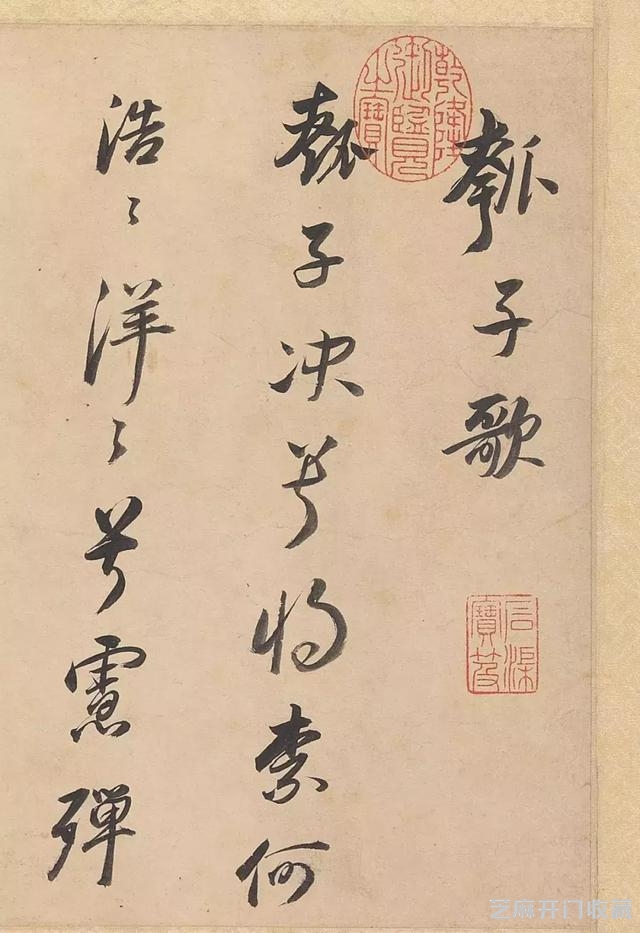 乾隆御覽之寶
瓠子歌
石渠寶笈
瓠子决兮将奈何
浩〻洋〻兮慮殫
芝麻开门收藏